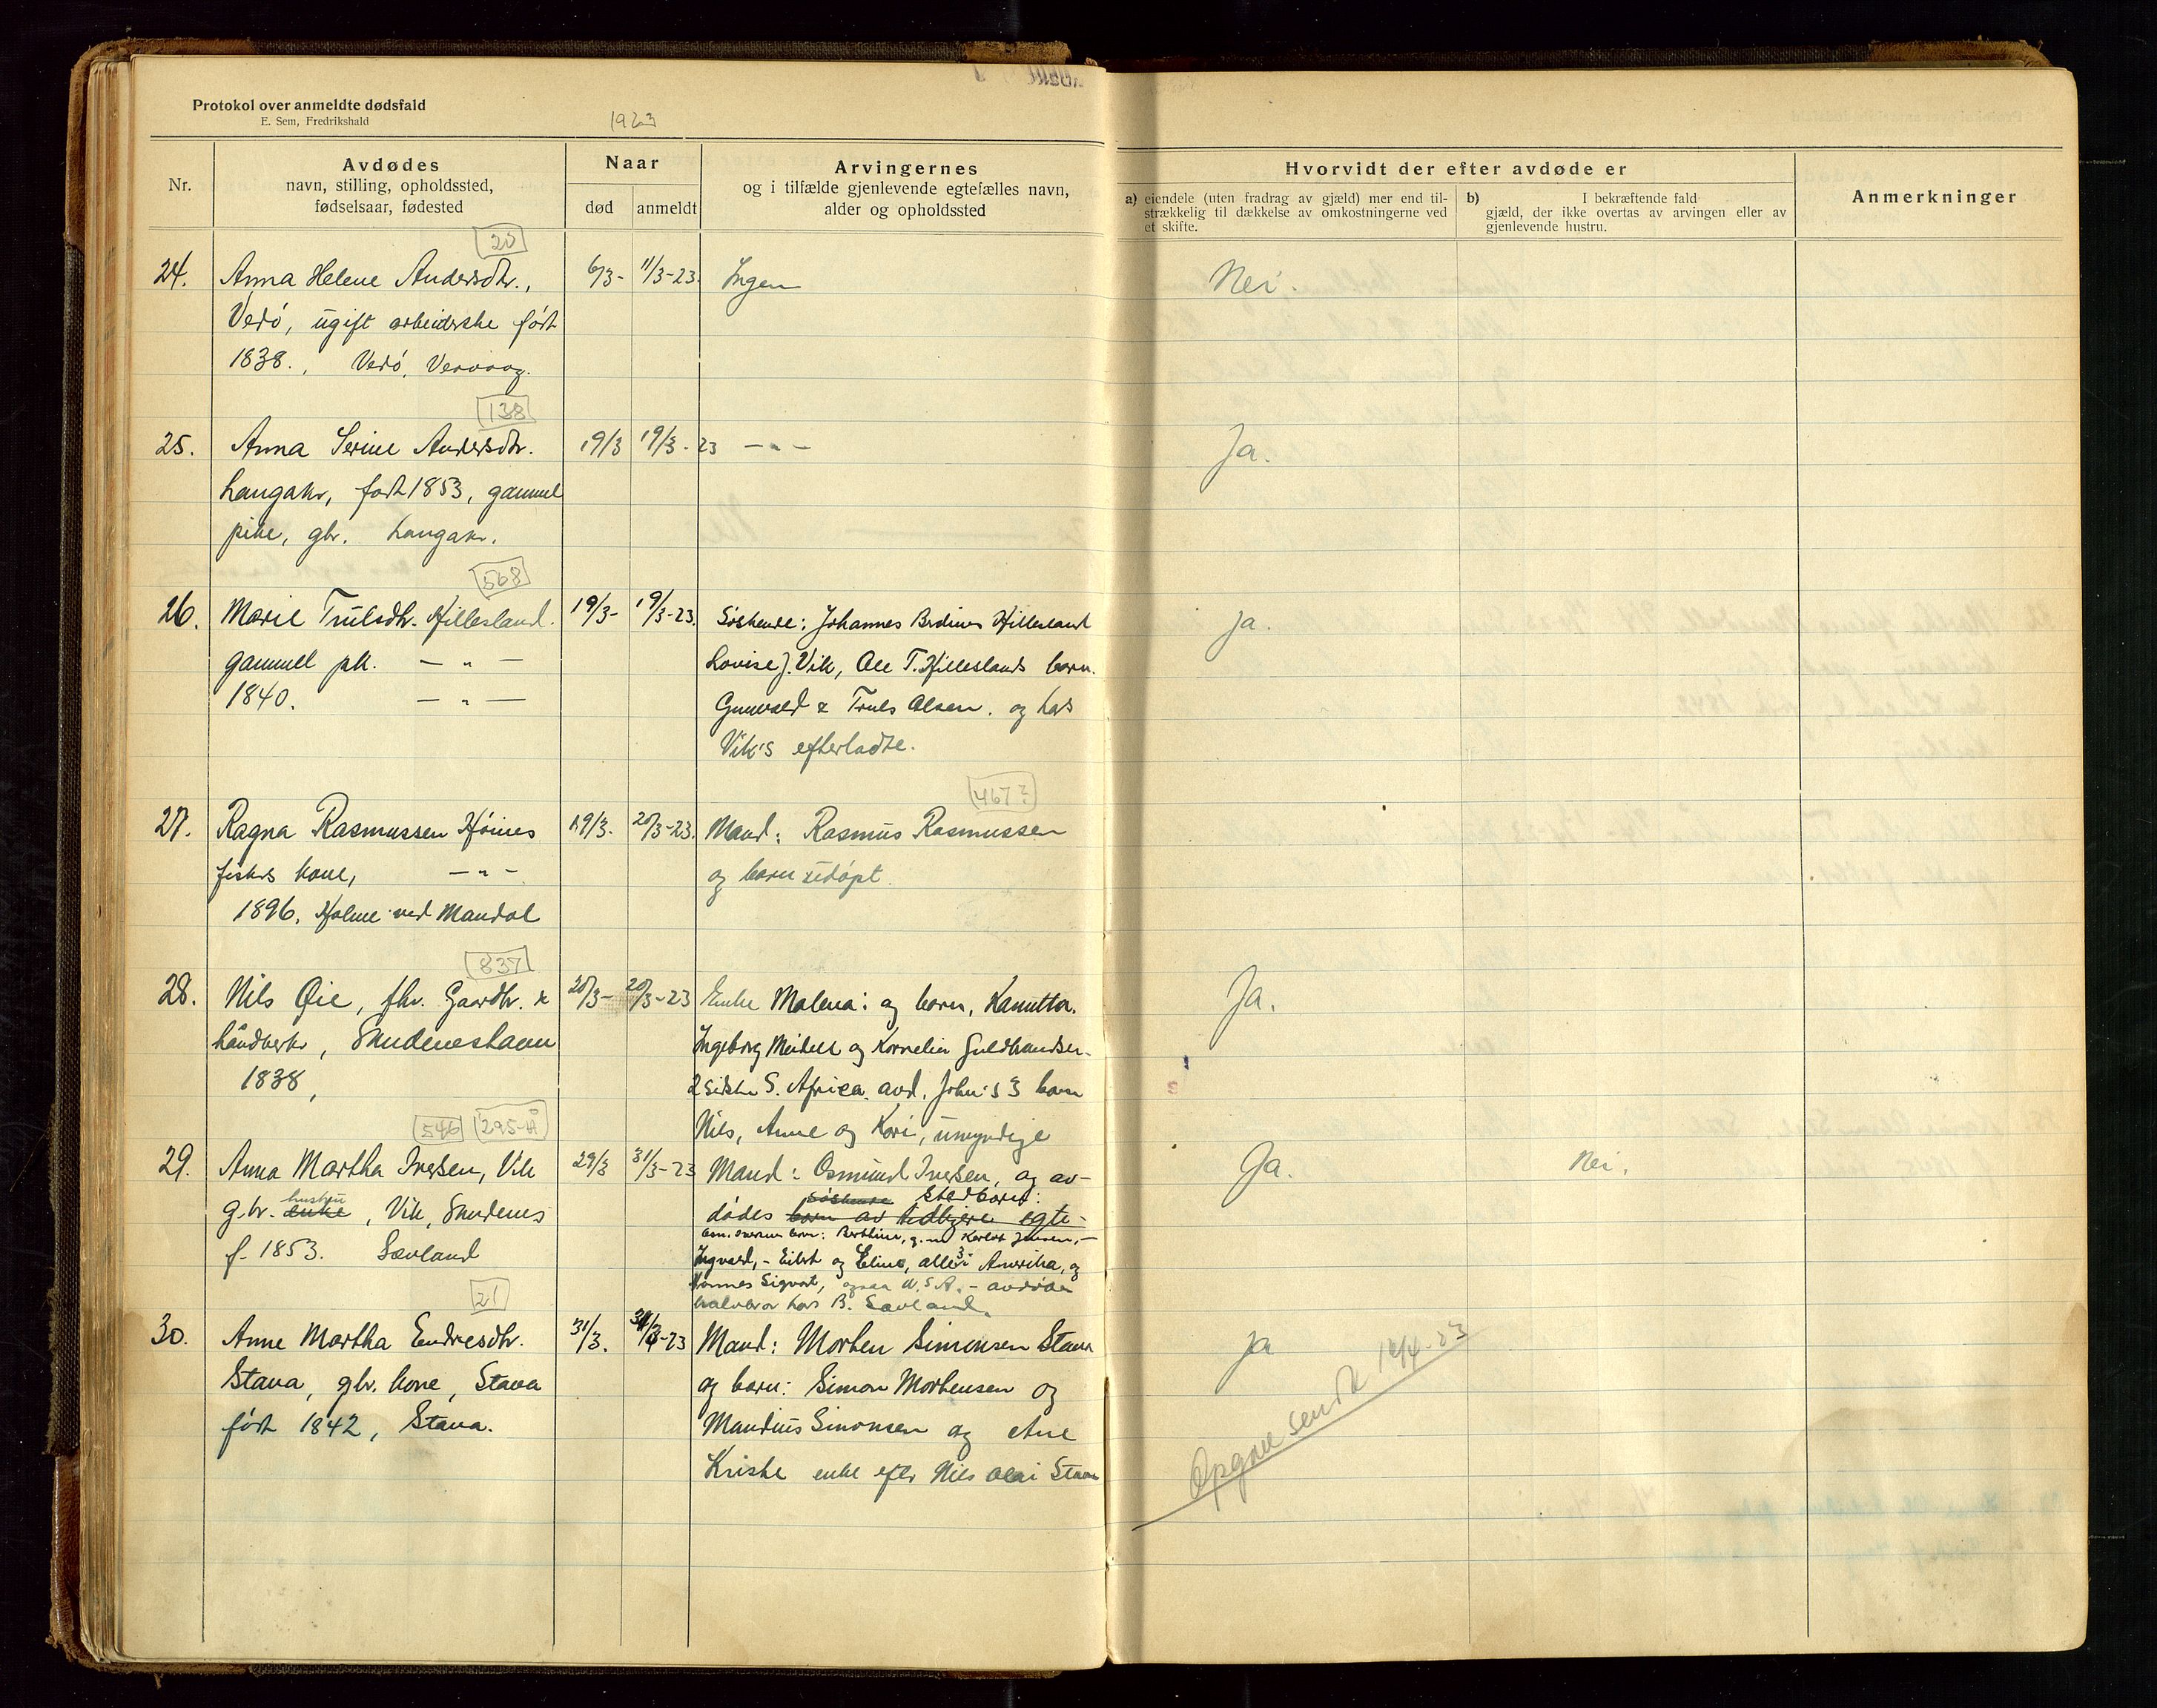 Protokol over anmeldte dødsfald
E. Sem, Fredrikshald
1923
Nr.
Avdødes
navn, stilling, opholdssted,
fødselsaar, fødested
Naar
død
anmeldt
Arvingernes
og i tilfælde gjenlevende egtefælles navn,
alder og opholdssted
Hvorvidt der efter avdøde er
a) eiendele (uten fradrag av gjæld) mer end til-
strækkelig til dækkelse av omkostningerne ved
et skifte.
b) I bekræftende fald
gjæld, der ikke overtas av arvingen eller av
gjenlevende hustru.
Anmerkninger
20
24. Anna Helene Andersdtr., 6/3- 11/3-23. Ingen Nei.
Vedö, ugift arbeiderske födt
1838., Vedö,
138
25. Anna Serine Andersdtr. 19/3 19/3-23 — " — Ja.
Langaker, födt 1853, gammel
pike, gbr. Langaker.
568
26. Marie Trulsdtr. Hillesland. 19/3- 19/3-23. Söskende: Johannes Hillesland Ja.
gammel pk. — " — Lovise J. Vik, Ole T. Hilleslands barn.
1840. — " — Gunvald & Truls Olsen. og Lars
Vik's efterladte.
467?
27. Ragna Rasmussen Höines 19/3. 20/3-23. Mand: Rasmus Rasmussen
fiskers kone, — " — og barn udöpt.
1896. Holme ved Mandal
837
28. Nils Øie, fhv. Gaardbr. & 20/3- 20/3-23 Enke Malena: og barn, Kanutta. Ja.
håndverker, Skudeneshavn Ingeborg Meidell og Kornelia Guldbrandsen-
1838, 2 sidste S. Africa. avd. John's 3 barn
Nils, Anne og Kari, umyndige
546 295-A
29. Anna Martha Iversen, Vik 29/3 31/3-23 Mand: Osmund Iversen, og av- Ja. Nei.
hustru söskende stedbarn:
gbr. enke, Vik, Skudenes dödes barn av tidligere egte-
barn: Berthine, g. m. Karlot Jensen,-
f. 1853. Sævland Ingvald, - Eilert og Eline, alle 3 i Amerika, og
Hannes Sigvart, ogsaa U.S.A. - avdöde
halvbror Lars B. Sævland.
21
30. Anne Martha Endresdtr. 31/3. 31/3-23 Mand: Morten Simonsen Stava Ja
Stava, gbr. kone, Stava og barn: Simon Mortensen og
födt 1842, Stava. Mandius Simonsen og Ane
Kriske enke efter Nils Olai Stava
Opgave sendt 12/4-23